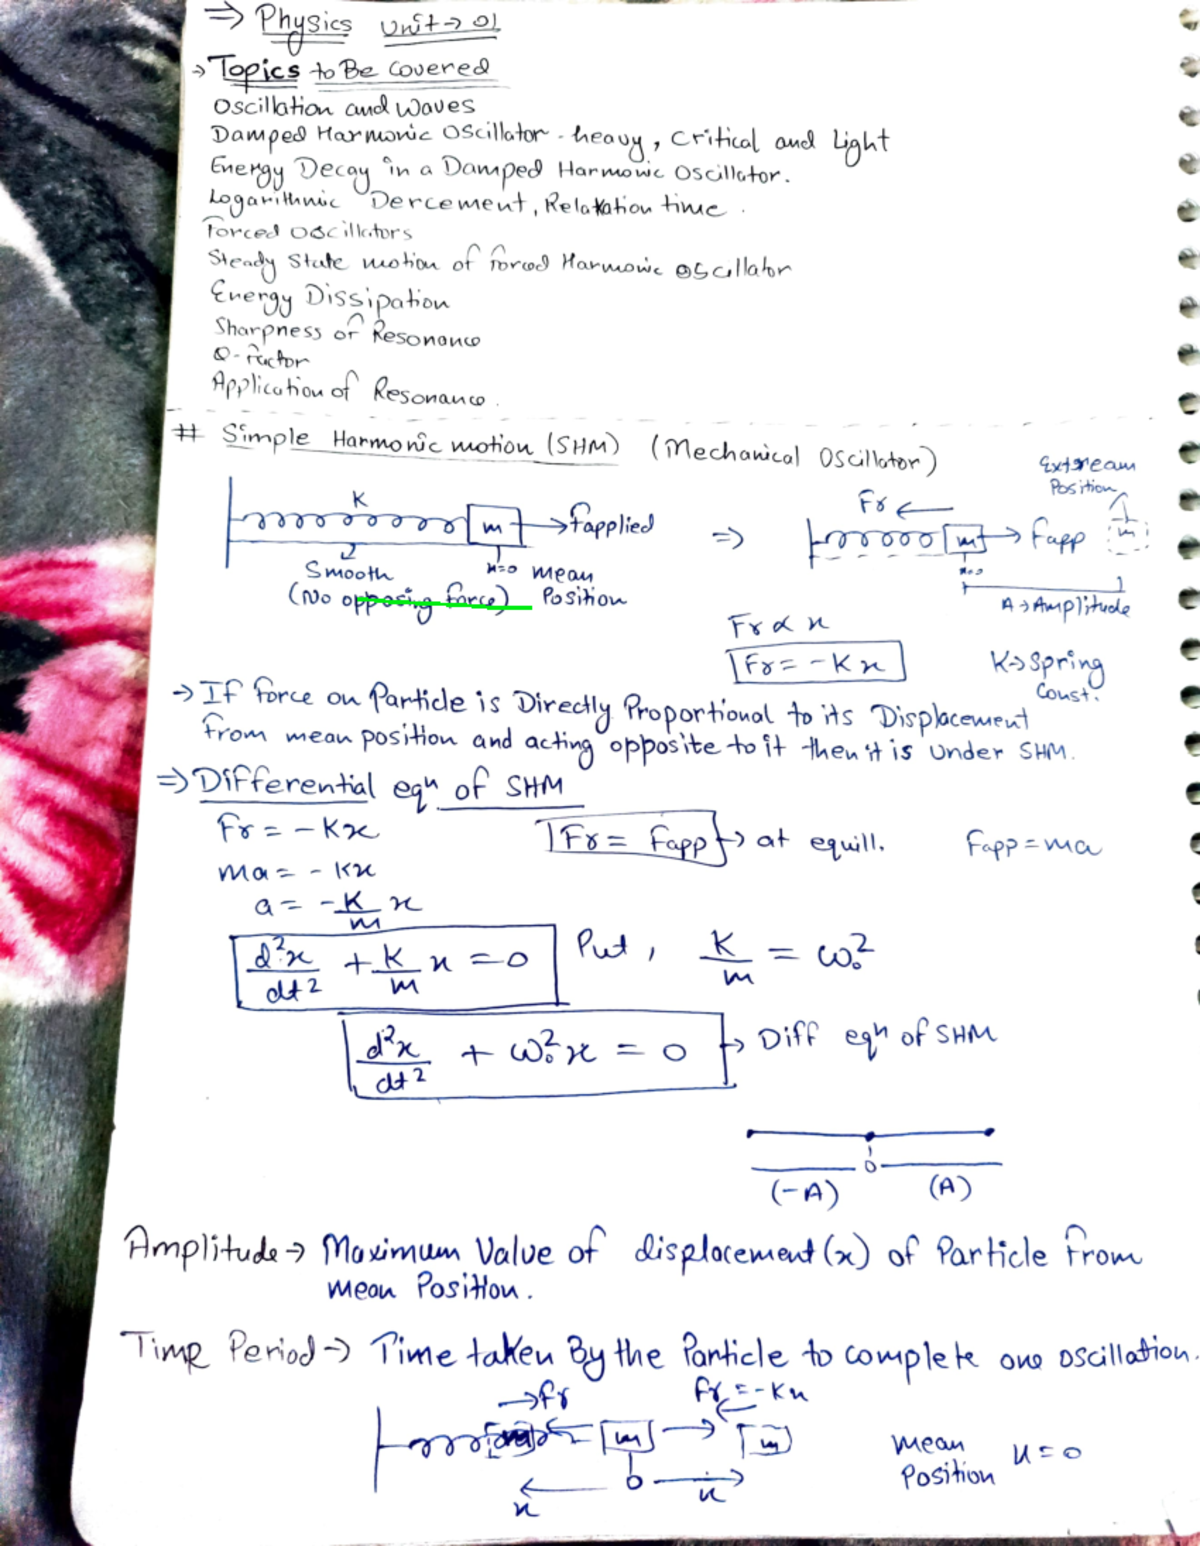 ⇒ Physics Unit → 01
→ Topics to Be Covered
Oscillation and Waves
Damped Harmonic Oscillator - heavy, Critical and Light
Energy Decay in a Damped Harmonic Oscillator.
Logarithmic Dercement, Relaxation time.
Forced Oscillators
Steady State motion of forced Harmonic Oscillator
Energy Dissipation
Sharpness of Resonance
Q-factor
Application of Resonance.
# Simple Harmonic motion (SHM) (Mechanical Oscillator)
K m → Fapplied
Smooth x=0 mean
(No opposing force) Position
⇒ Fr ← m → Fapp m
Extream
Position
x=0
A → Amplitude
Fr ∝ x
Fr = -Kx K → Spring
Const.
→ If force on Particle is Directly Proportional to its Displacement
from mean position and acting opposite to it then it is Under SHM.
⇒ Differential eqn of SHM
Fr = -Kx Fr = Fapp → at equill. Fapp = ma
ma = -Kx
a = -K/m x
d²x/dt² + K/m x = 0 Put, K/m = ω₀²
d²x/dt² + ω₀²x = 0 → Diff eqn of SHM
0
(-A) (A)
Amplitude → Maximum Value of displacement (x) of Particle from
mean Position.
Time Period → Time taken By the Particle to complete one oscillation.
→ Fr Fr = -Kx
m m
0
x x
mean
Position x = 0